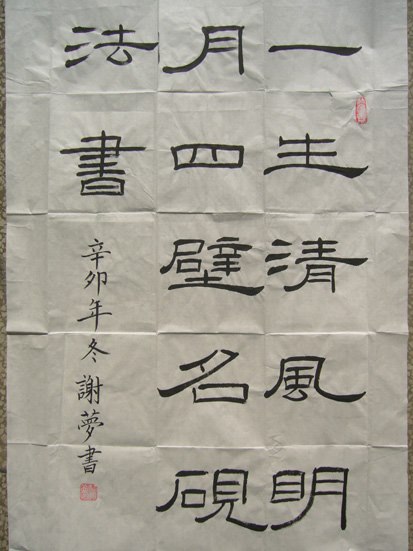 一生清風明
月四壁名硯
法書
辛卯年冬謝夢書